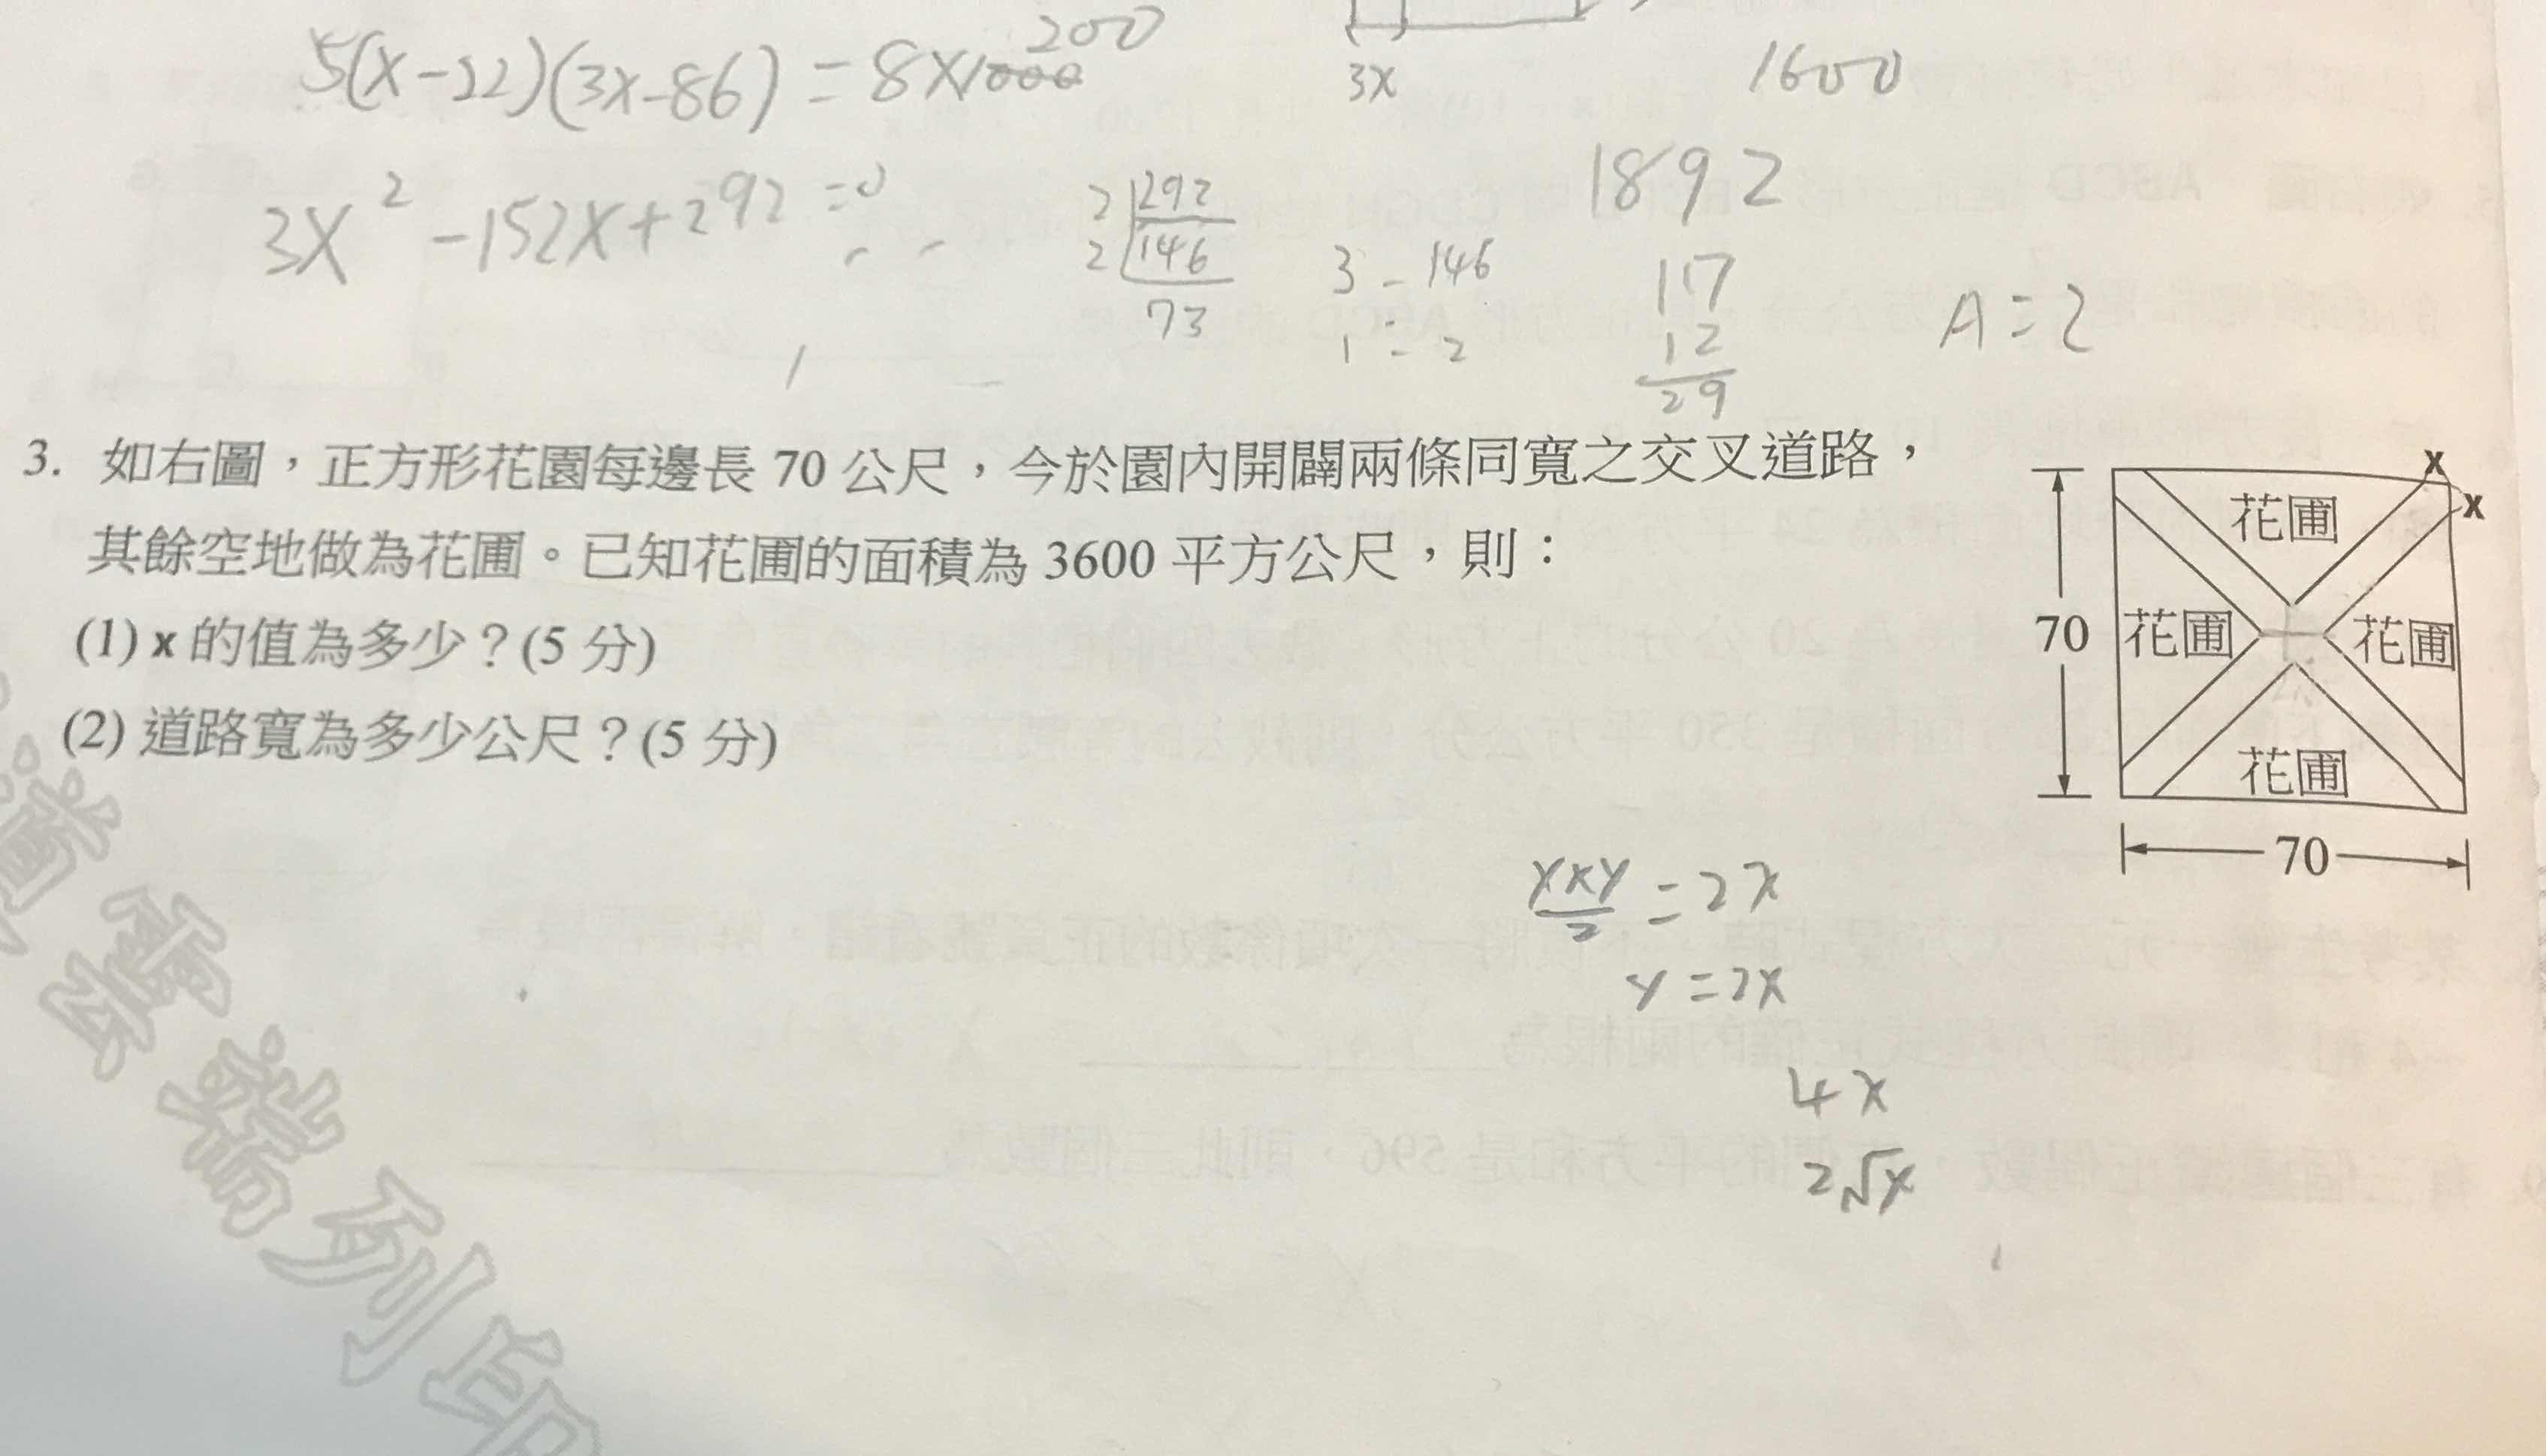 200
5(x-22)(3x-86)=8×1000
3x
1600
3x²-152x+292=0
2 292
2 146
73
3 - 146
1 - 2
1892
117
12
29
A=2
3. 如右圖，正方形花園每邊長 70 公尺，今於園內開闢兩條同寬之交叉道路，
其餘空地做為花圃。已知花圃的面積為 3600 平方公尺，則：
(1) x 的值為多少？(5 分)
(2) 道路寬為多少公尺？(5 分)
x
x
花圃
70
花圃
花圃
花圃
70
y×y/2 = 2x
y=2x
4x
2√x
雲端列印